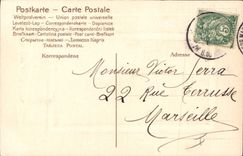 Postkarte – Carte Postale
Weltpostverein – Union postale universelle
Levelező-Lap – Correspondenzkarte – Dopisnice
Karta korespondencyjna – Korespondenční lístek
Brefkort – Cartolina postale – Post card – Briefkort
Korrespondenz
Adresse
Monsieur Victor Serra
22 Rue Terrusse
Marseille